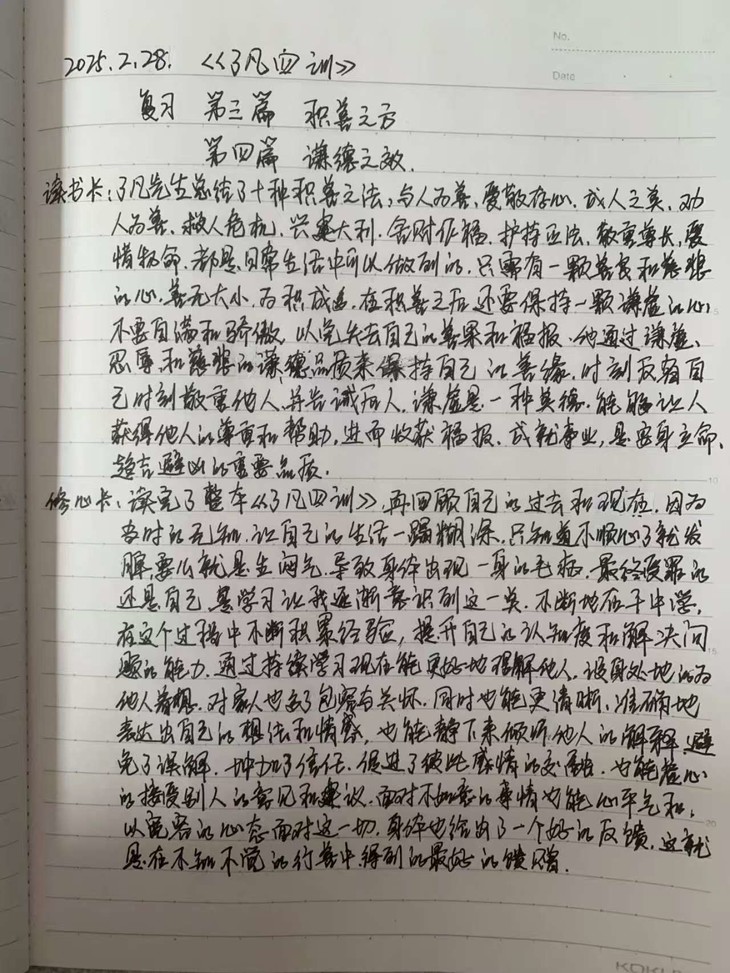 No.
Date
2025.2.28. 《了凡四训》
复习 第三篇 积善之方
第四篇 谦德之效.
读书卡:了凡先生总结了十种积善之法,与人为善,爱敬存心.成人之美.劝
人为善.救人危机.兴建大利.舍财作福.护持正法.敬重尊长,爱
惜物命.都是日常生活中可以做到的.只需有一颗善良和慈悲
的心.善无大小.为积成德.在积善之后还要保持一颗谦虚的心
不要自满和骄傲.以免失去自己的善果和福报.他通过谦虚、
忍辱和慈悲的谦德品质来保持自己的善缘.时刻反省自
己时刻敬重他人.并告诫后人.谦虚是一种美德.能够让人
获得他人的尊重和帮助,进而收获福报.成就事业,是安身立命、
趋吉避凶的重要品质.
修心卡:读完了整本《了凡四训》,再回顾自己的过去和现在.因为
当时的无知.让自己的生活一蹋糊涂.只知道不顺心了就发
脾,要么就是生闷气.导致身体出现一身的毛病.最终受罪的
还是自己.是学习让我逐渐意识到这一关.不断地在干中学,
在这个过程中不断积累经验,提升自己的认知度和解决问
题的能力.通过持续学习现在能更好地理解他人.设身处地的为
他人着想.对家人也多了包容与关怀.同时也能更清晰、准确地
表达出自己的想法和情感,也能静下来倾听他人的解释.避
免了误解.增加了信任.促进了彼此感情的交融.也能虚心
的接受别人的意见和建议.面对不如意的事情也能心平气和,
以宽容的心态面对这一切.身体也给出了一个好的反馈.这就
是在不知不觉的行善中.得到的最好的馈赠.